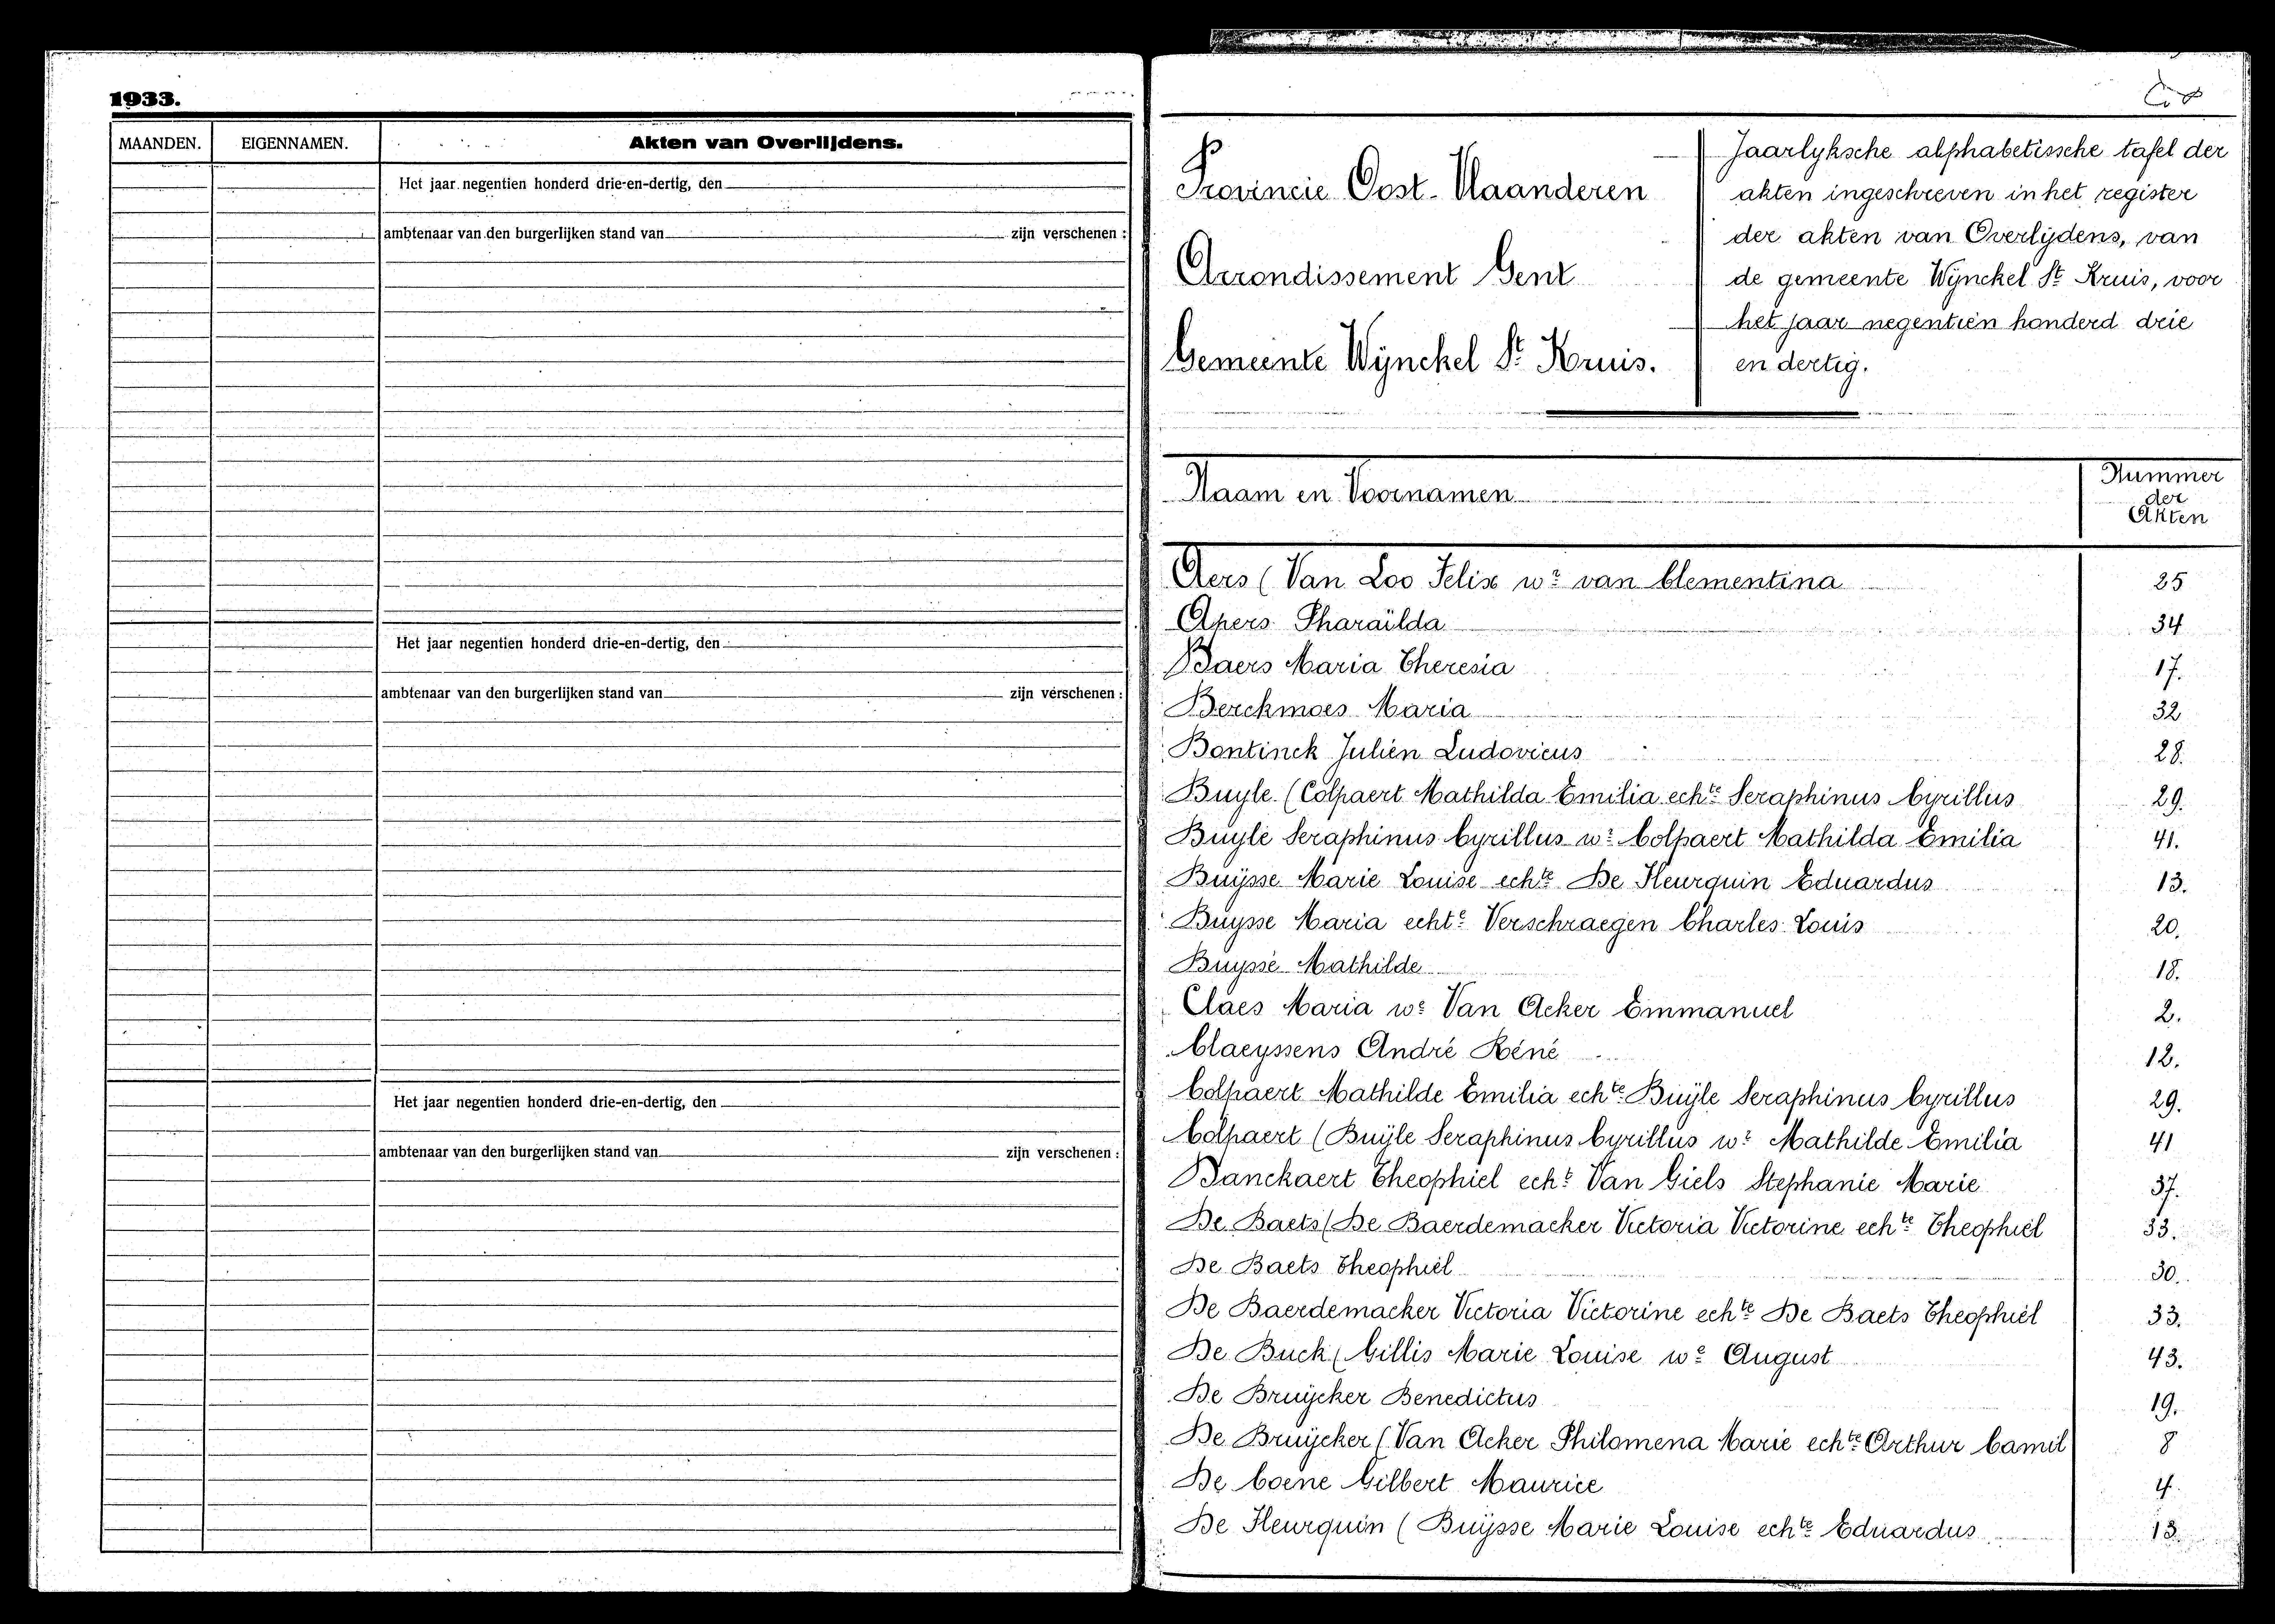 1933.
MAANDEN. EIGENNAMEN. Akten van Overlijdens.
Het jaar negentien honderd drie-en-dertig, den
ambtenaar van den burgerlijken stand van zijn verschenen :
Het jaar negentien honderd drie-en-dertig, den
ambtenaar van den burgerlijken stand van zijn verschenen :
Het jaar negentien honderd drie-en-dertig, den
ambtenaar van den burgerlijken stand van zijn verschenen :
Provincie Oost-Vlaanderen
Arrondissement Gent
Gemeente Wÿnckel St Kruis.
Jaarlyksche alphabetissche tafel der
akten ingeschreven in het register
der akten van Overlijdens, van
de gemeente Wÿnckel St Kruis, voor
het jaar negentien honderd drie
en dertig.
Naam en Voornamen
Nummer
der
Akten
Aers (Van Loo Felix wr van Clementina 25
Apers Pharaïlda 34
Baers Maria Theresia 17.
Berckmoes Maria 32
Bontinck Julien Ludovicus 28.
Buyle (Colpaert Mathilda Emilia echte Seraphinus Cyrillus 29.
Buyle Seraphinus Cyrillus wr Colpaert Mathilda Emilia 41.
Buÿsse Marie Louise echte De Fleurquin Eduardus 13.
Buysse Maria echte Verschraegen Charles Louis 20.
Buysse Mathilde 18.
Claes Maria we Van Acker Emmanuel 2.
Claeyssens André Réné 12.
Colpaert Mathilde Emilia echte Buÿle Seraphinus Cyrillus 29.
Colpaert (Buÿle Seraphinus Cyrillus wr Mathilde Emilia 41
Danckaert Theophiel echt Van Giels Stephanie Marie 37.
De Baets (De Baerdemacker Victoria Victorine echte Theophiel 33.
De Baets Theophiel 30.
De Baerdemacker Victoria Victorine echte De Baets Theophiel 33.
De Buck (Gillis Marie Louise we August 43.
De Bruÿcker Benedictus 19.
De Bruÿcker (Van Acker Philomena Marie echte Arthur Camil 8
De Coene Gilbert Maurice 4.
De Fleurquin (Buÿsse Marie Louise echte Eduardus 13.